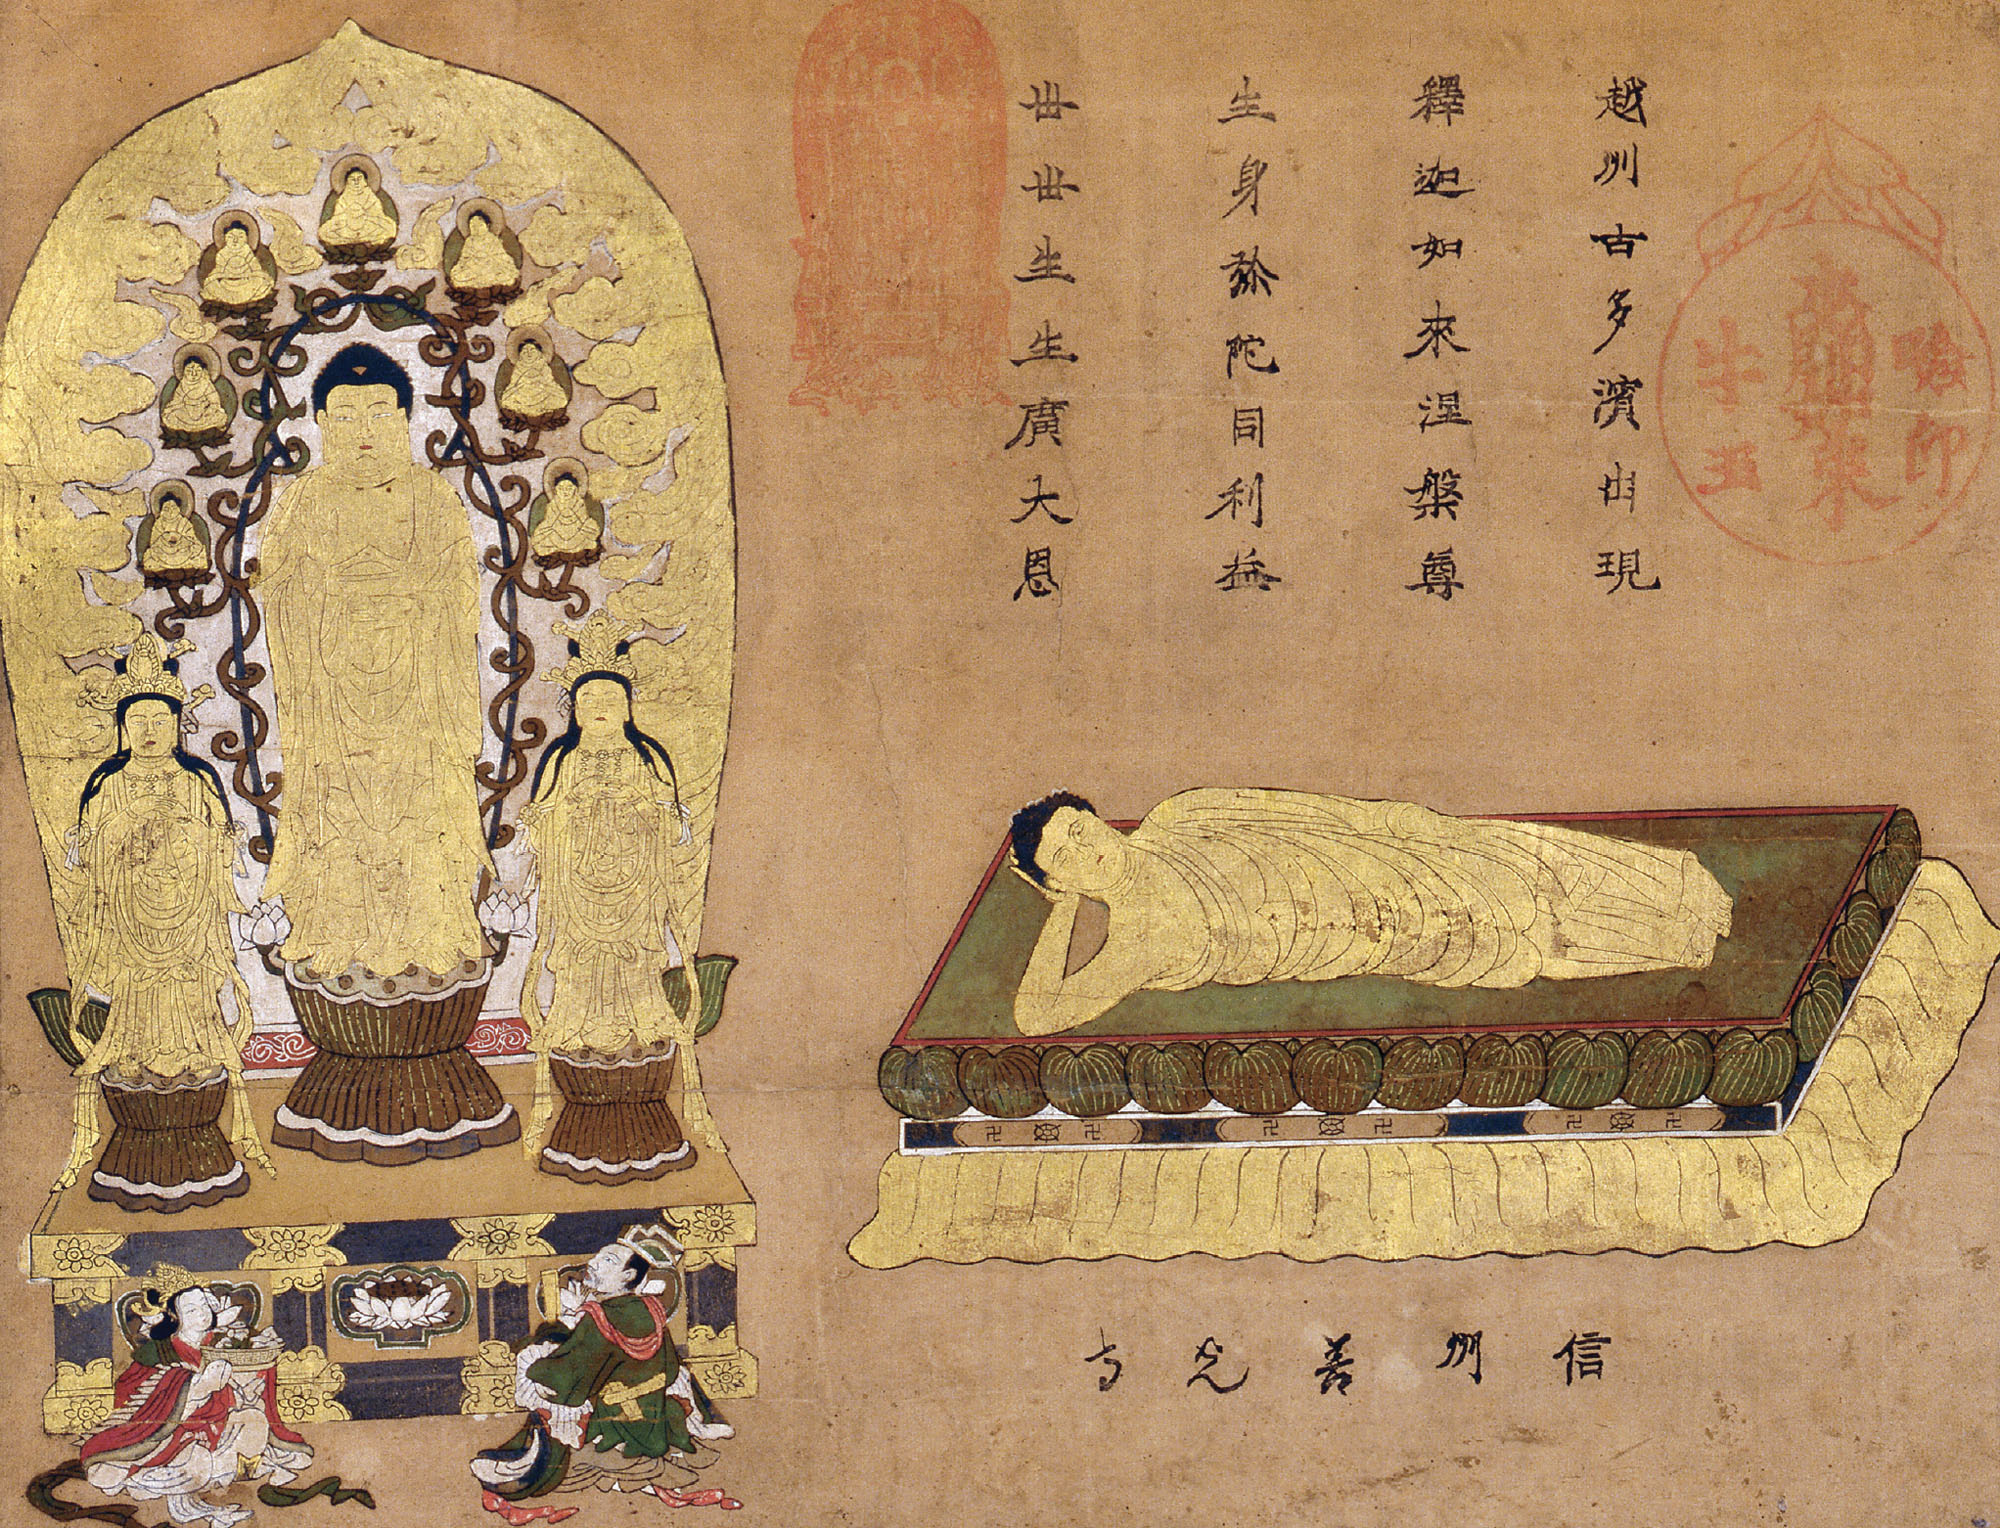 越州古多濱出現
釋迦如來涅槃尊
生身弥陀同利益
世世生生廣大恩
信州善光寺
牛王